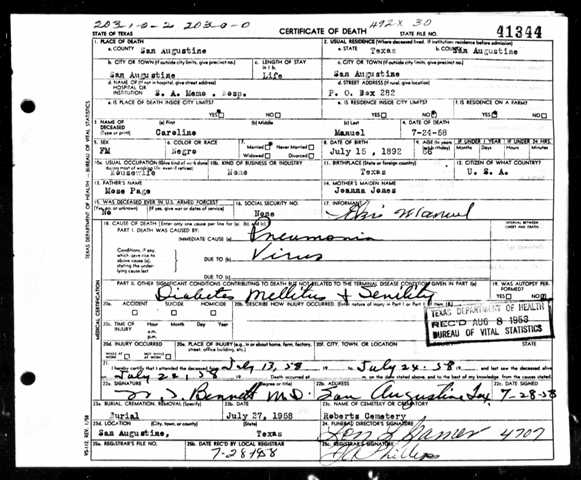 2031-0-2 203-0-0
492X 30
STATE OF TEXAS
CERTIFICATE OF DEATH
41344
1. PLACE OF DEATH
a. COUNTY San Augustine
2. USUAL RESIDENCE (Where deceased lived. If institution: residence before admission)
a. STATE Texas
b. COUNTY San Augustine
b. CITY OR TOWN (If outside city limits, give precinct no.)
San Augustine
c. LENGTH OF STAY
Life
c. CITY OR TOWN (If outside city limits, give precinct no.)
San Augustine
d. NAME OF (If not in hospital, give street address)
HOSPITAL OR
INSTITUTION S. A. Meme. Hosp.
d. STREET ADDRESS (If rural, give location)
P. O. Box 282
e. IS PLACE OF DEATH INSIDE CITY LIMITS?
YES NO
e. IS RESIDENCE INSIDE CITY LIMITS?
YES NO
f. IS RESIDENCE ON A FARM?
YES NO
3. NAME OF
DECEASED
(Type or print)
(a) First
Caroline
(b) Middle
(c) Last
Manuel
4. DATE OF DEATH
7-24-58
5. SEX
FM
6. COLOR OR RACE
Negro
7. Married Never Married
Widowed Divorced
8. DATE OF BIRTH
July 15, 1892
9. AGE
IF UNDER 1 YEAR
Months Days
IF UNDER 24 HRS.
Hours Min.
10a. USUAL OCCUPATION
Housewife
10b. KIND OF BUSINESS OR INDUSTRY
Home
11. BIRTHPLACE (State or foreign country)
Texas
12. CITIZEN OF WHAT COUNTRY?
U. S. A.
13. FATHER'S NAME
Mose Page
14. MOTHER'S MAIDEN NAME
Joanna Jones
15. WAS DECEASED EVER IN U.S. ARMED FORCES?
No
16. SOCIAL SECURITY NO.
None
17. INFORMANT
Manuel
18. CAUSE OF DEATH [Enter only one cause per line for (a), (b), and (c).]
PART I. DEATH WAS CAUSED BY:
IMMEDIATE CAUSE (a) Pneumonia
Conditions, if any,
which gave rise to
above cause (a),
stating the under-
lying cause last
DUE TO (b) Virus
DUE TO (c)
INTERVAL BETWEEN
PART II. OTHER SIGNIFICANT CONDITIONS CONTRIBUTING TO DEATH BUT NOT RELATED TO THE TERMINAL DISEASE CONDITION GIVEN IN PART I(a)
Diabetes Mellitus & Senility
19. WAS AUTOPSY PERFORMED?
YES NO
20a. ACCIDENT SUICIDE HOMICIDE
20b. DESCRIBE HOW INJURY OCCURRED.
TEXAS DEPARTMENT OF HEALTH
REC'D AUG 8 1958
BUREAU OF VITAL STATISTICS
20c. TIME OF
INJURY
Hour Month Day Year
20d. INJURY OCCURRED
20e. PLACE OF INJURY
20f. CITY, TOWN, OR LOCATION
COUNTY STATE
21. I hereby certify that I attended the deceased from July 13, 58 to July 24, 58 and last saw the deceased alive
on July 24, 58 Death occurred at m. on the date stated above, and to the best of my knowledge from the causes stated.
22a. SIGNATURE
(Degree or title)
Bennett M.D.
22b. ADDRESS
San Augustine Tex
22c. DATE SIGNED
7-28-58
23a. BURIAL, CREMATION, REMOVAL (Specify)
Burial
23b. DATE
July 27, 1958
23c. NAME OF CEMETERY OR CREMATORY
Roberts Cemetery
23d. LOCATION (City, town, or county) (State)
San Augustine, Texas
24. FUNERAL DIRECTOR'S SIGNATURE
4707
25a. REGISTRAR'S FILE NO.
25b. DATE REC'D BY LOCAL REGISTRAR
7-28-1958
25c. REGISTRAR'S SIGNATURE
Phillips
TEXAS DEPARTMENT OF HEALTH — BUREAU OF VITAL STATISTICS
MEDICAL CERTIFICATION
VS-112 REV. 1/58